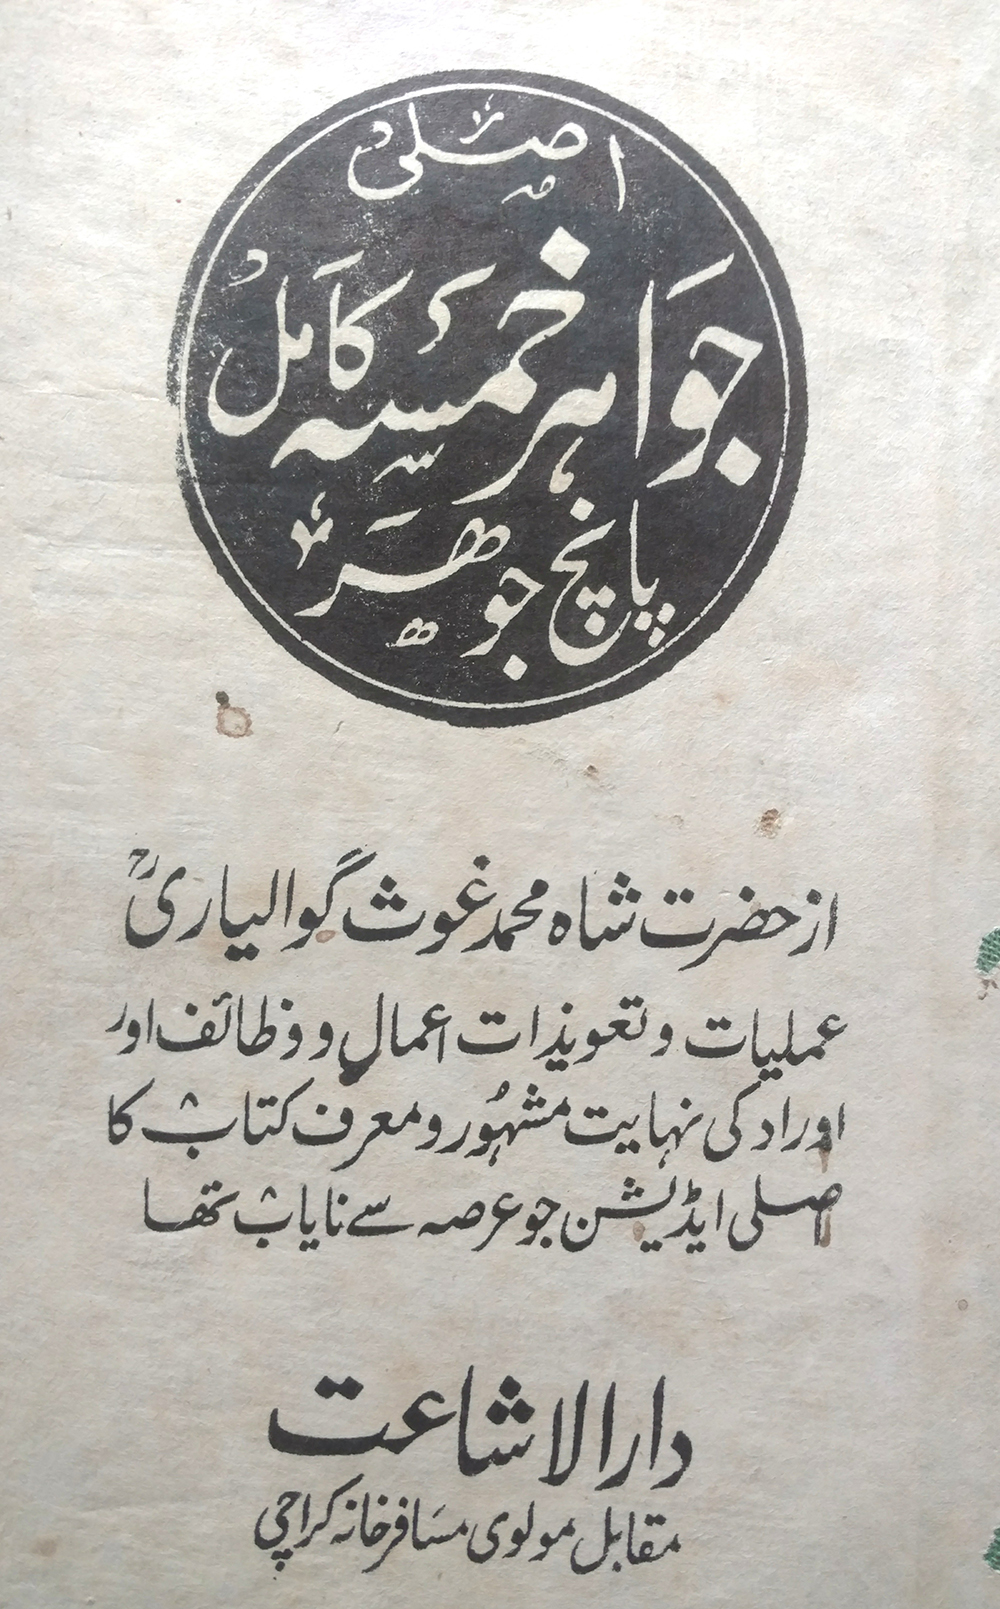 اصلی
جواہر خمسہ کامل
پانچ جوھر
از حضرت شاہ محمد غوث گوالیاریؒ
عملیات و تعویذات اعمال و وظائف اور
اوراد کی نہایت مشہُور و معرف کتاب کا
اصلی ایڈیشن جو عرصہ سے نایاب تھا
دارالاشاعت
مقابل مولوی مسافر خانہ کراچی